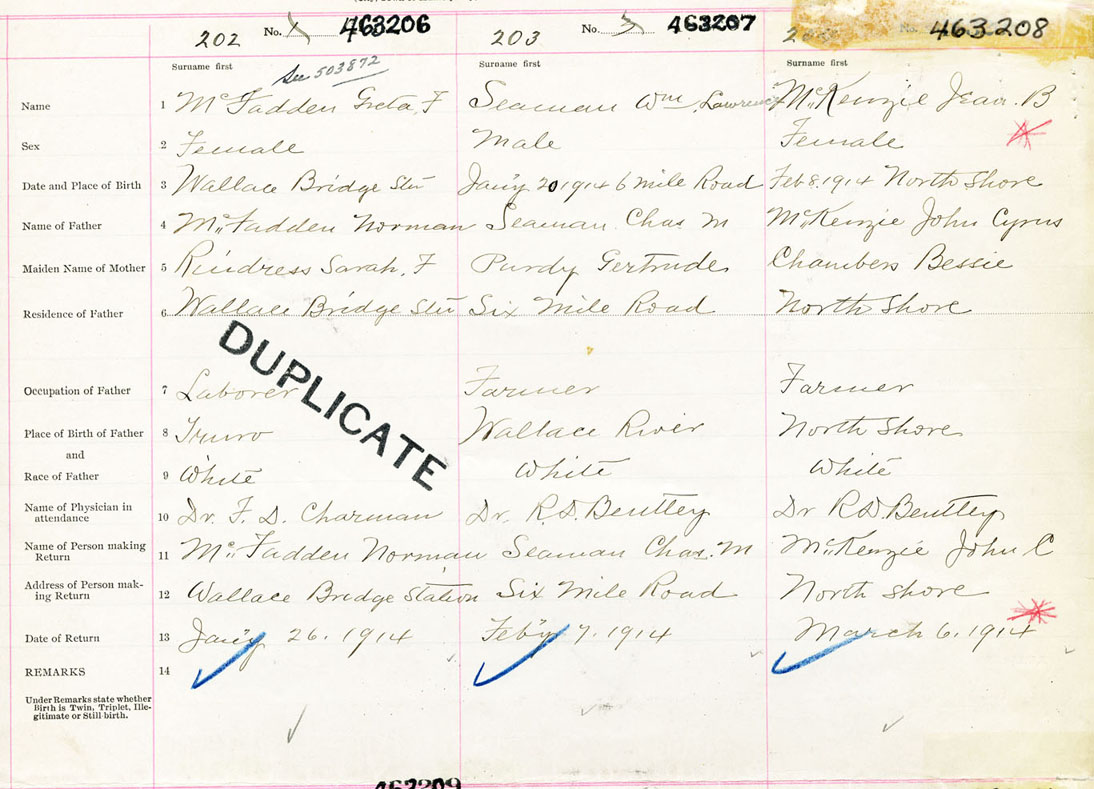 202 No. 463206 203 No. 463207 No. 463208
Surname first See 503872 Surname first Surname first
Name 1 McFadden Greta, F Seaman Wm Lawrence McKenzie Jean. B
Sex 2 Female Male Female
Date and Place of Birth 3 Wallace Bridge Stn Jan'y 20 1914 6 mile Road Feb 8. 1914 North Shore
Name of Father 4 McFadden Norman Seaman Chas M McKenzie John Cyrus
Maiden Name of Mother 5 Rindress Sarah, F Purdy Gertrude Chambers Bessie
Residence of Father 6 Wallace Bridge Stn Six Mile Road North Shore
DUPLICATE
Occupation of Father 7 Laborer Farmer Farmer
Place of Birth of Father 8 Truro Wallace River North Shore
and
Race of Father 9 White White White
Name of Physician in
attendance 10 Dr. F. D. Charman Dr. R.D. Benttey Dr R.D Benttey
Name of Person making
Return 11 McFadden Norman Seaman Chas. M McKenzie John C
Address of Person mak-
ing Return 12 Wallace Bridge Station Six Mile Road North Shore
Date of Return 13 Jan'y 26. 1914 Feb'y 7. 1914 March 6. 1914
REMARKS 14
Under Remarks state whether
Birth is Twin, Triplet, Ille-
gitimate or Still-birth.
463209